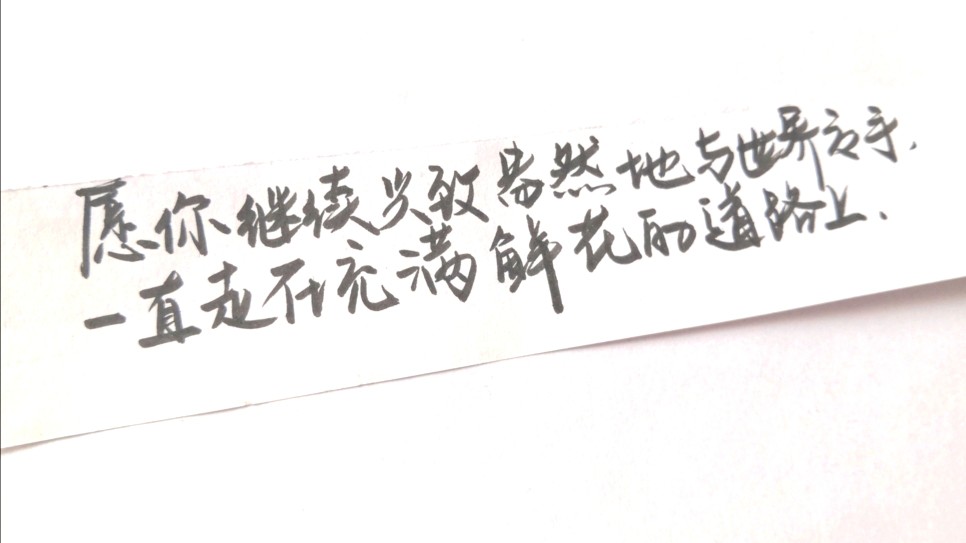 愿你继续兴致盎然地与世界交手，
一直走在充满鲜花的道路上．